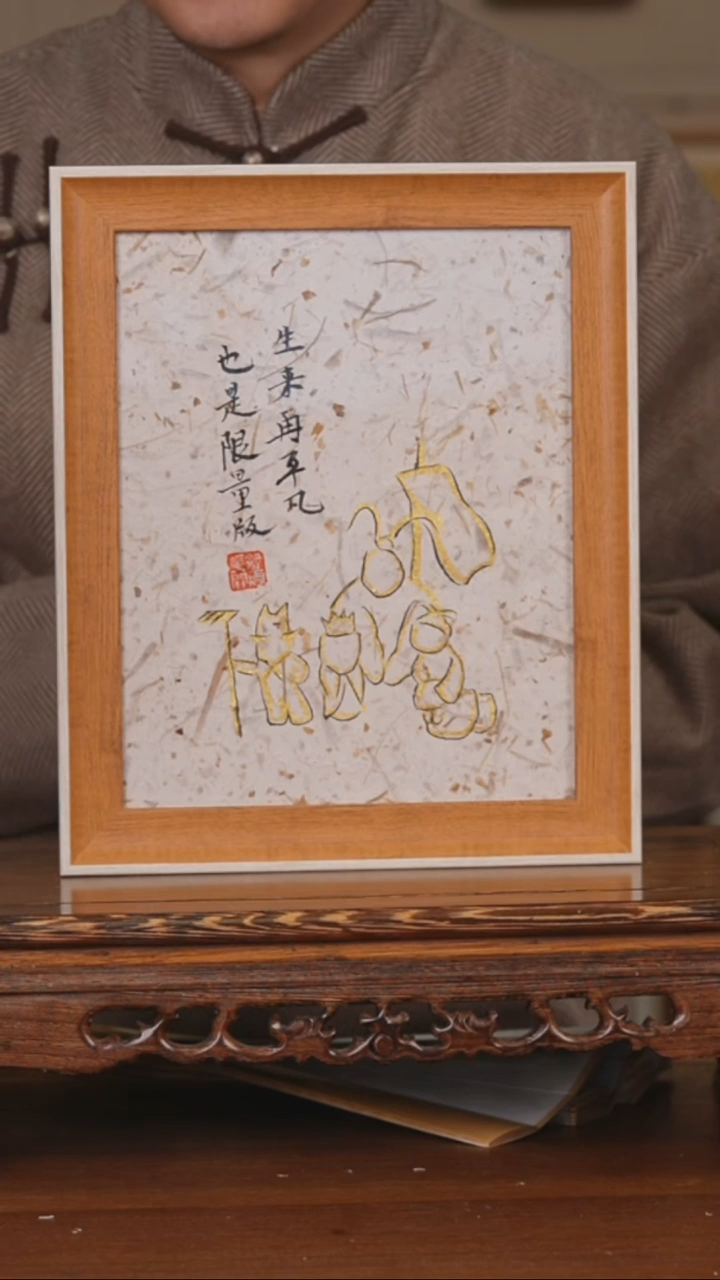 生来再平凡
也是限量版